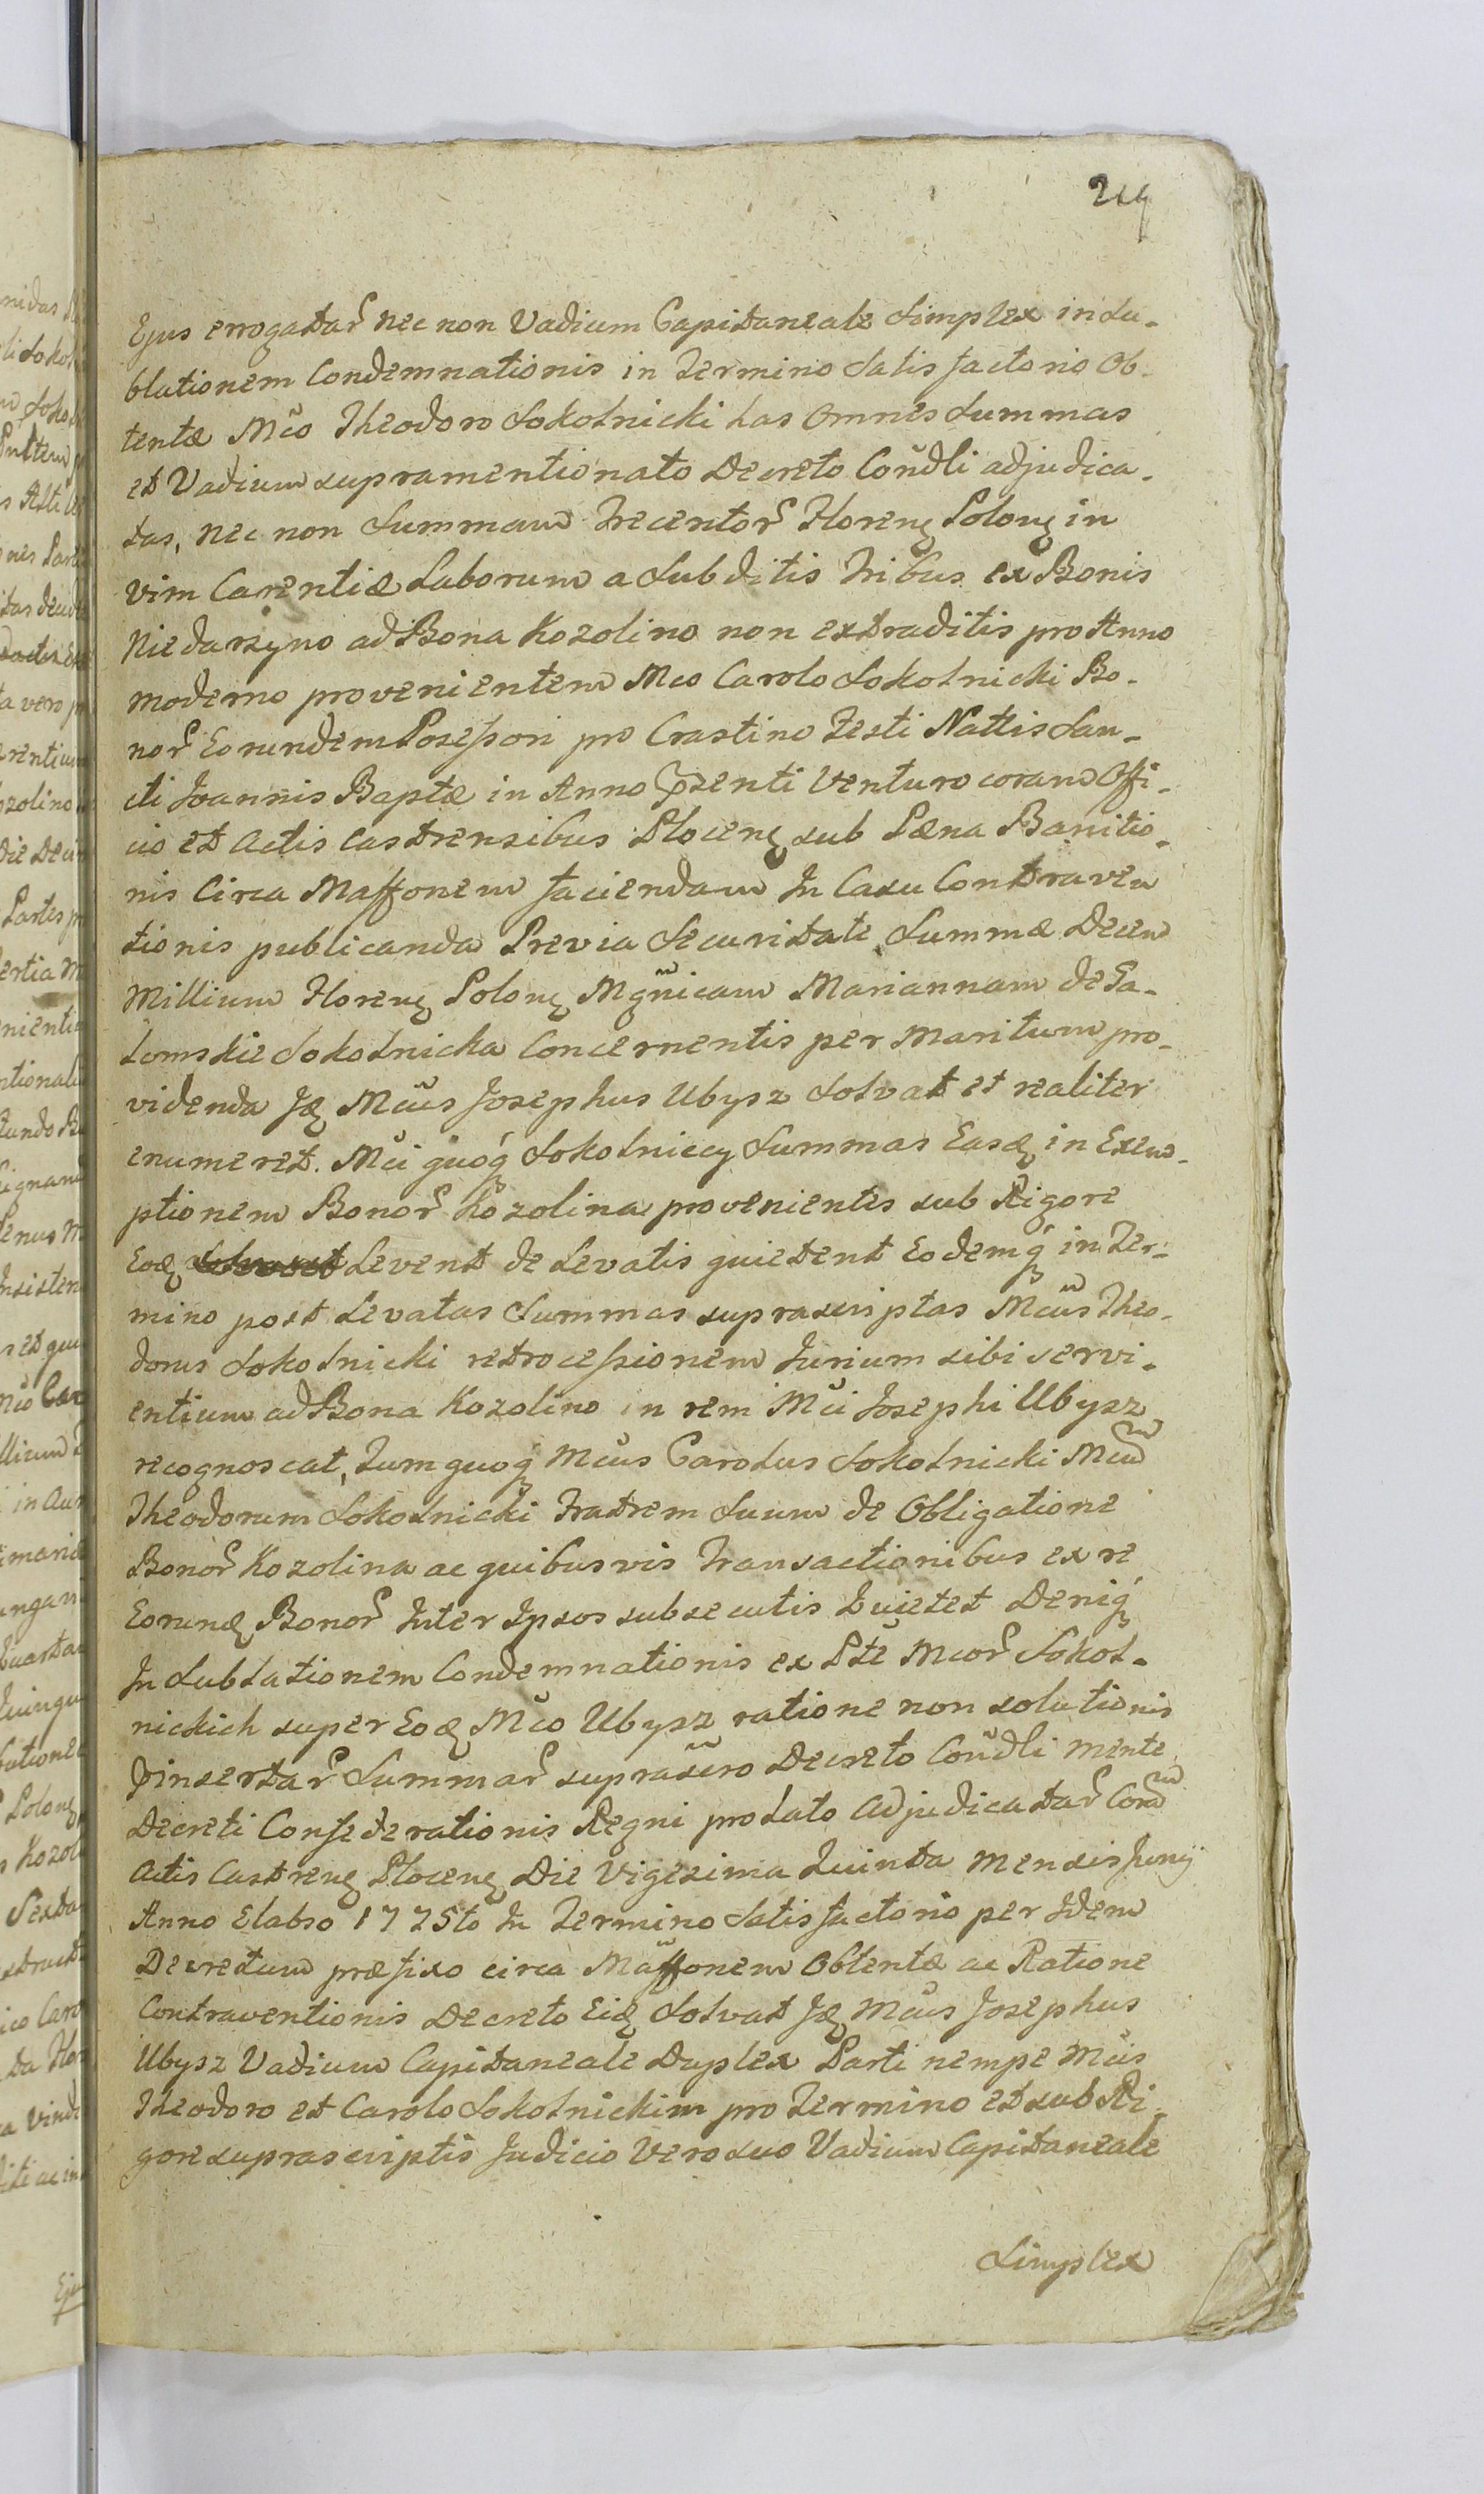 219
Ejus errogatar nec non Vadium Capitaneale Simplex in Su-
blationem Condemnationis in Termino Satisfactorio Ob-
tentæ Mco Theodoro Sokolnicki has Omnes Summas
et Vadium supramentionato Decreto Condli adjudica-
tas, nec non Summam Trecentor Floren Polon in
vim Carentiæ Laborum a Subditis Tribus ex Bonis
Niedarzyno ad Bona Kozolino non extraditis pro Anno
moderno provenientem Mco Carolo Sokolnicki Bo-
nor Eorundem Posessori pro Crastino Festi Nattis San-
cti Joannis Baptæ in Anno præsenti Venturo coram Offi-
cio et Actis Castrensibus Plocen sub Pæna Banitio-
nis Circa Maffonem faciendam In Casu Contraven
tionis publicanda Previa Securitate Summæ Decem
Millium Floren Polon Mgnicam Mariannam de Ga-
lumskie Sokolnicka Concernentis per Maritum pro-
videnda Jd Mcus Josephus Ubysz Solvat et realiter
enumeret. Mci quoq Sokolniccy Summas Easd in Exem-
ptionem Bonor Kozolina provenientes sub Rigore
Eod Levent de Levatis quietent Eodemq in Ter-
mino post Levatas Summas suprascriptas Mcus Theo-
dorus Sokolnicki retrocessionem Jurium sibi servi-
entium ad Bona Kozolino in rem Mci Josephi Ubysz
recognoscat, Tum quoq Mcus Carolus Sokolnicki Mcum
Theodorum Sokolnicki Fratrem Suum de Obligatione
Bonor Kozolina ac quibusvis Transactionibus ex re
Eorund Bonor Inter Ipsos subsecutis Quietet Deniq
In Sublationem Condemnationis ex Pte Mcor Sokol-
nickich super Eod Mco Ubysz ratione non solutionis
præinsertar Summar suprascro Decreto Condli mente
Decreti Confederationis Regni prolato Adjudicatar Coram
Actis Castren Plocen Die Vigesima Quinta Mensis Junij
Anno Elabso 1775to In Termino Satisfactorio per Idem
Decretum præfixo circa Maffonem Obtentæ ac Ratione
Contraventionis Decreto Eid Solvat Jd Mcus Josephus
Ubysz Vadium Capitaneale Duplex Parti nempe Mcis
Theodoro et Carolo Sokolnickim pro Termino et sub Ri-
gore suprascriptis Judicio Vero suo Vadium Capitaneale
Simplex